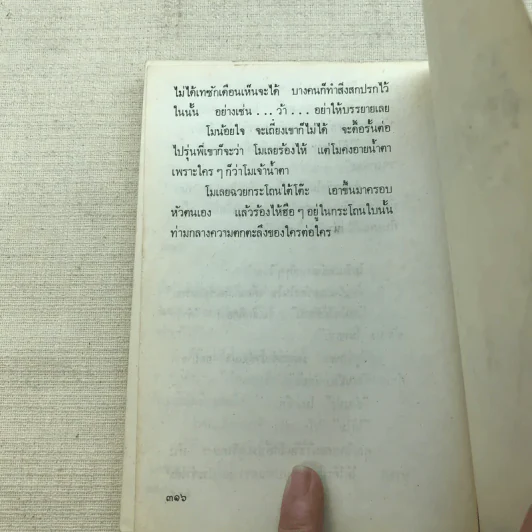 ไม่ได้เทซักเดือนเห็นจะได้ บางคนก็ทำสิ่งสกปรกไว้
ในนั้น อย่างเช่น ... ว้า ... อย่าให้บรรยายเลย
โมน้อยใจ จะเถียงเขาก็ไม่ได้ จะดื้อรั้นต่อ
ไปรุ่นพี่เขาก็จะว่า โมเลยร้องไห้ แต่โมคงอายน้ำตา
เพราะใคร ๆ ก็ว่าโมเจ้าน้ำตา
โมเลยฉวยกระโถนใต้โต๊ะ เอาขึ้นมาครอบ
หัวตนเอง แล้วร้องไห้ฮือ ๆ อยู่ในกระโถนใบนั้น
ท่ามกลางความตกตะลึงของใครต่อใคร
๓๑๖